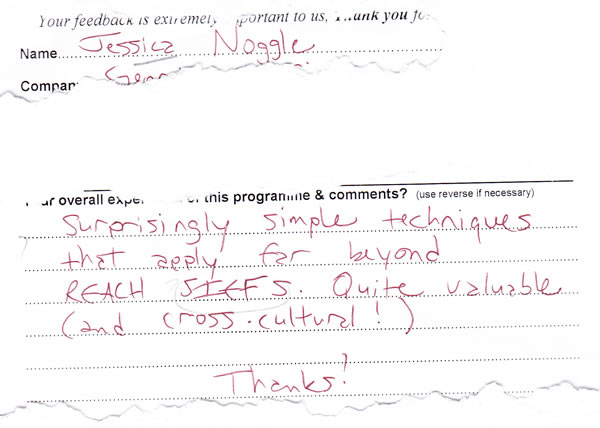 Your feedback is extremely important to us, Thank you fo
Name Jessica Noggle
Compan
ur overall expe this programme & comments? (use reverse if necessary)
Surprisingly simple techniques
that apply far beyond
REACH SIEFS. Quite valuable
(and cross-cultural!)
Thanks!